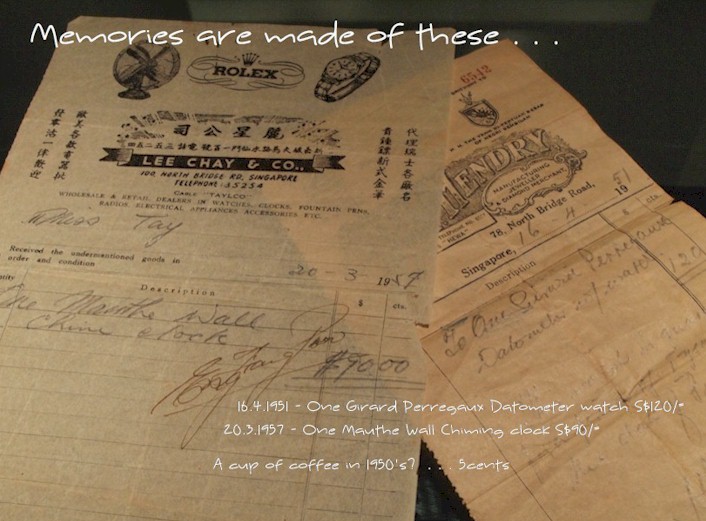 Memories are made of these . . .
ROLEX
歐美各款電器批
什零沽一律歡迎
司公星麗
代理瑞士各廠名
貴錶鐘新式金筆
LEE CHAY & CO.,
100 NORTH BRIDGE RD, SINGAPORE
TELEPHONE: 35254
CABLE "TAYLCO"
WHOLESALE & RETAIL DEALERS IN WATCHES, CLOCKS, FOUNTAIN PENS,
RADIOS, ELECTRICAL APPLIANCES ACCESSORIES ETC.
Miss Tay
Received the undermentioned goods in
order and condition
20 3 1957
Description
$ cts.
One Mauthe Wall
Chime clock
$90.00
6542
HENDRY
MANUFACTURING
JEWELLER
& DIAMOND MERCHANT.
78, North Bridge Road,
Singapore, 16 4 1951
Description
$
To One Girard Perregaux
Datometer
120
16.4.1951 - One Girard Perregaux Datometer watch S$120/=
20.3.1957 - One Mauthe Wall Chiming clock S$90/=
A cup of coffee in 1950's? . . . 5cents